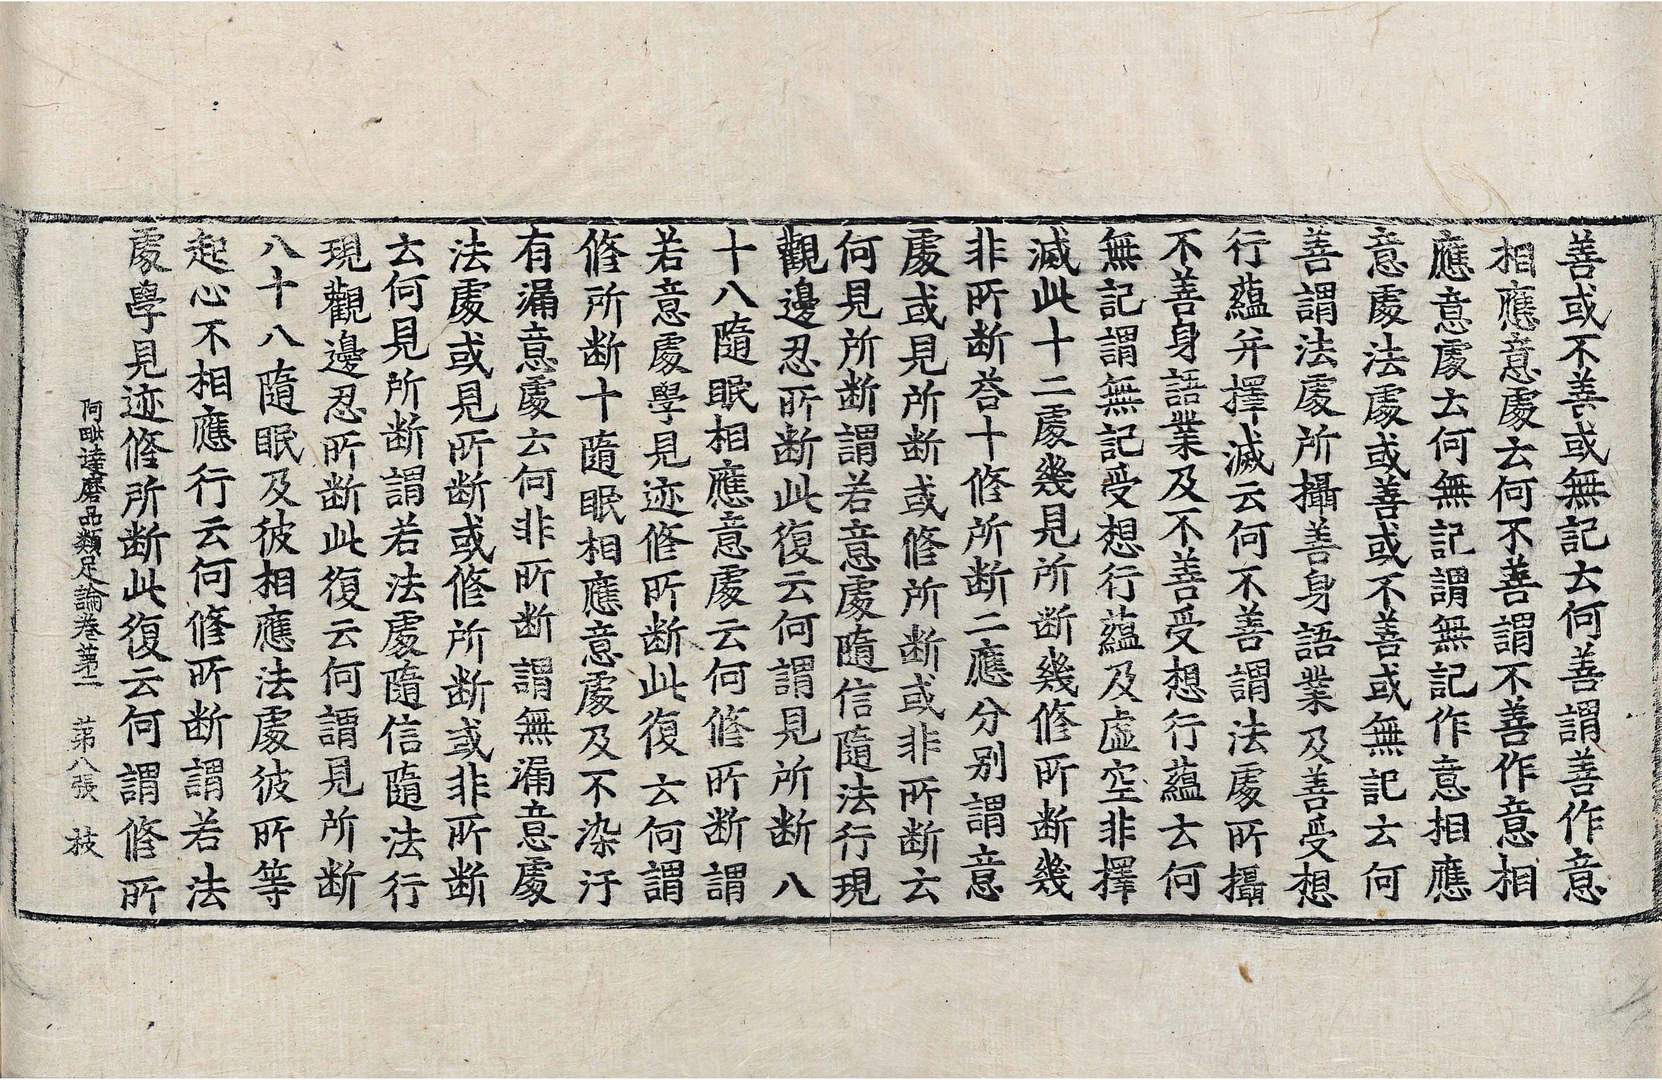 善或不善或無記云何善謂善作意
相應意處云何不善謂不善作意相
應意處云何無記謂無記作意相應
意處法處或善或不善或無記云何
善謂法處所攝善身語業及善受想
行蘊并擇滅云何不善謂法處所攝
不善身語業及不善受想行蘊云何
無記謂無記受想行蘊及虛空非擇
滅此十二處幾見所斷幾修所斷幾
非所斷荅十修所斷二應分別謂意
處或見所斷或修所斷或非所斷云
何見所斷謂若意處隨信隨法行現
觀邊忍所斷此復云何謂見所斷八
十八隨眠相應意處云何修所斷謂
若意處學見迹修所斷此復云何謂
修所斷十隨眠相應意處及不染汙
有漏意處云何非所斷謂無漏意處
法處或見所斷或修所斷或非所斷
云何見所斷謂若法處隨信隨法行
現觀邊忍所斷此復云何謂見所斷
八十八隨眠及彼相應法處彼所等
起心不相應行云何修所斷謂若法
處學見迹修所斷此復云何謂修所
阿毗達磨品類足論卷第二 第八張 枝